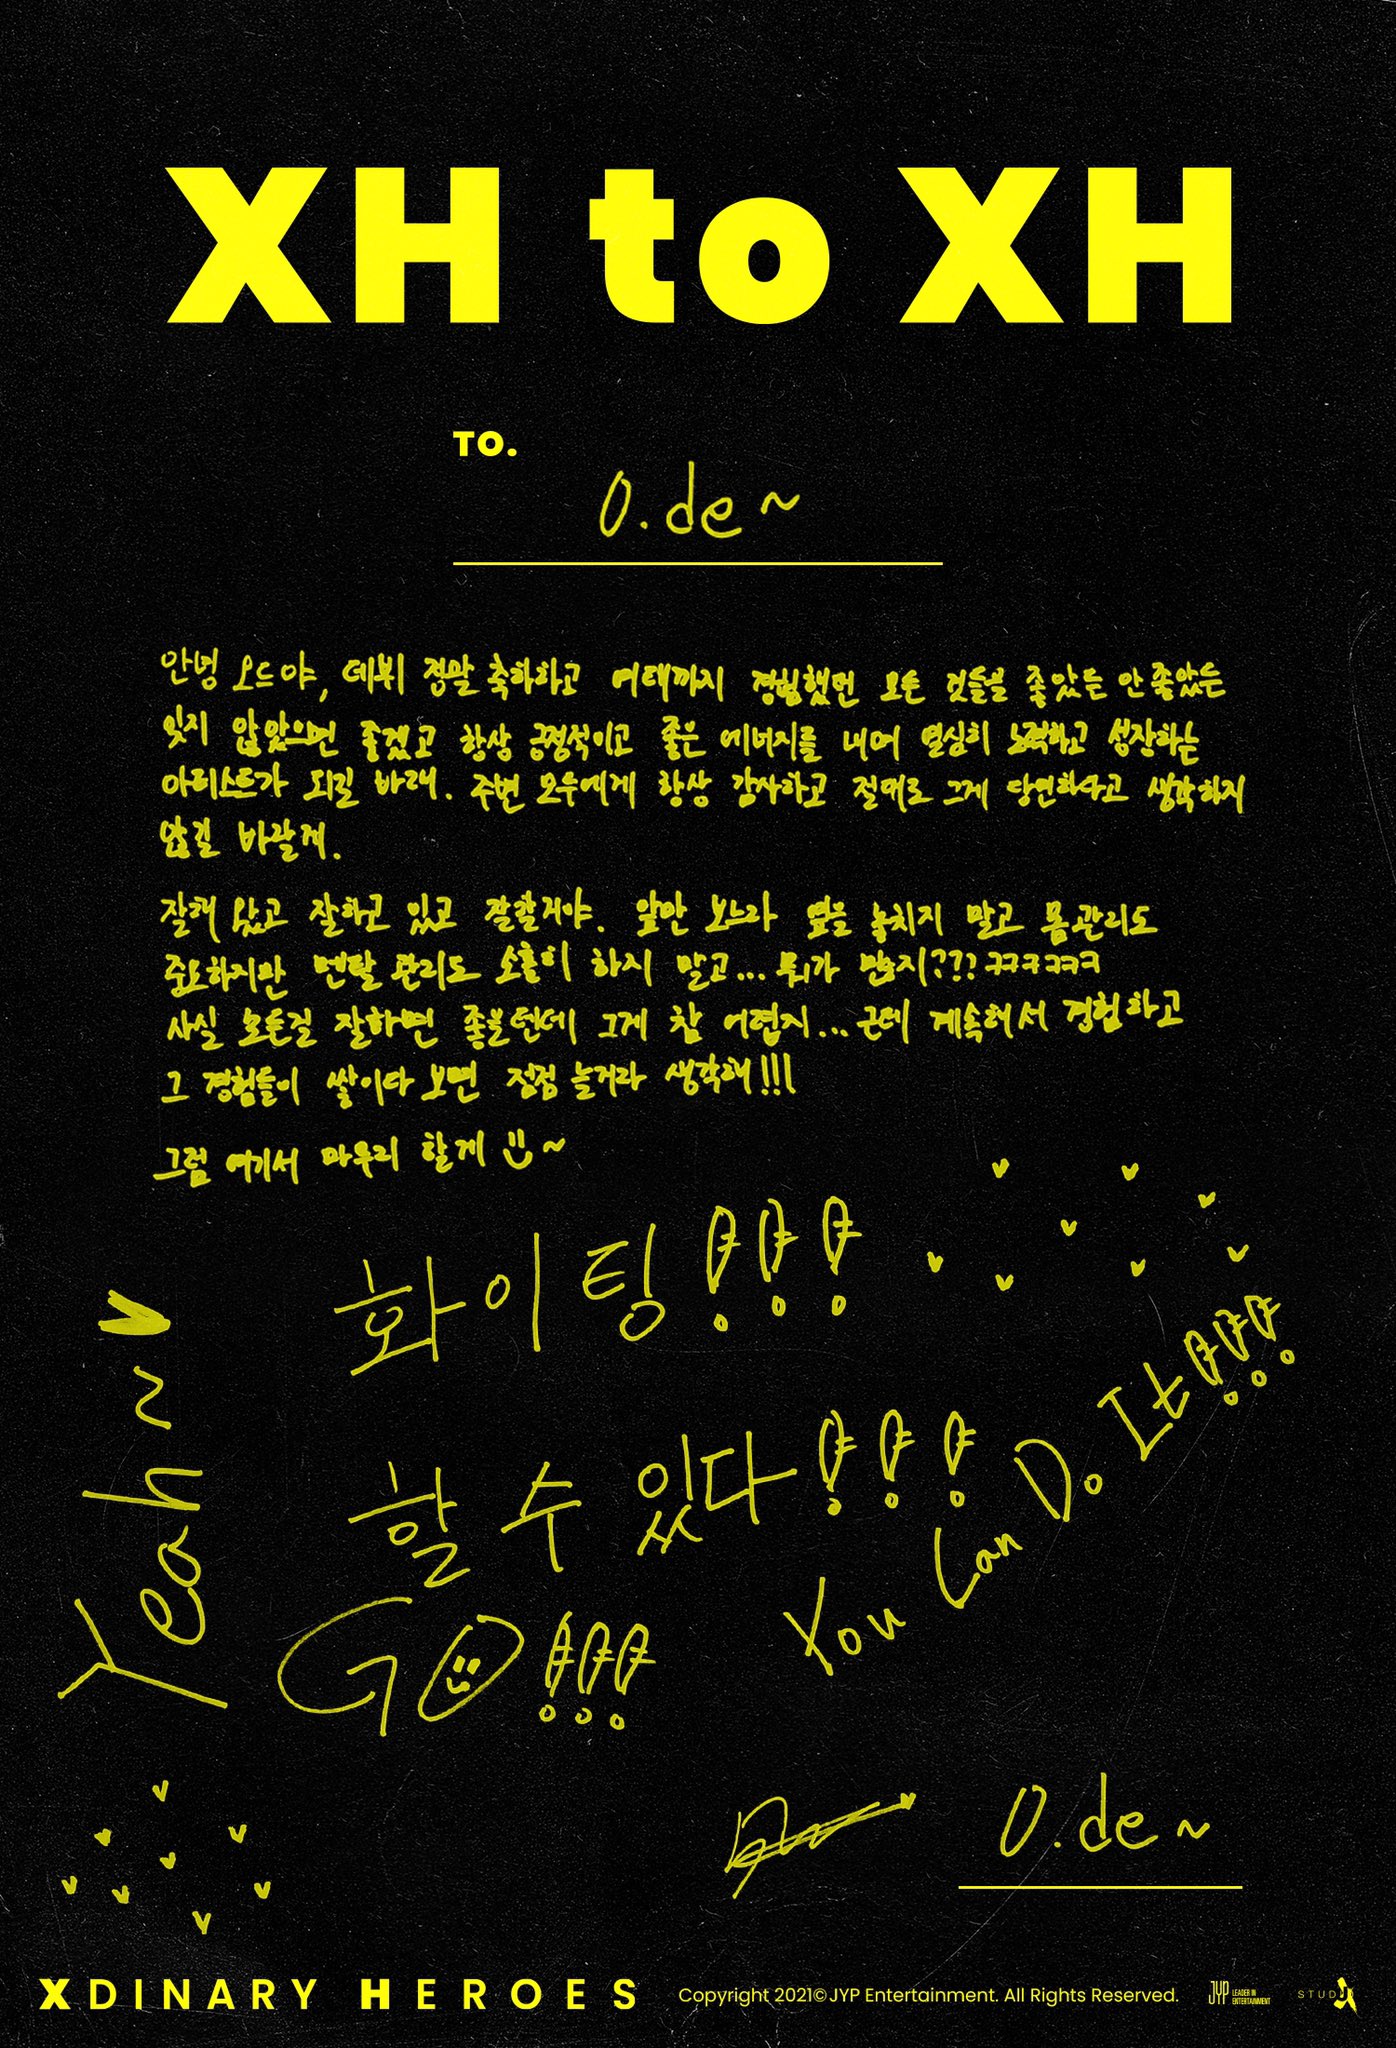 XH to XH
TO.
O.de~
안녕 오드야, 데뷔 정말 축하하고 여태까지 경험했던 모든 것들을 좋았든 안 좋았든
잊지 않았으면 좋겠고 항상 긍정적이고 좋은 에너지를 내며 열심히 노력하고 성장하는
아티스트가 되길 바래. 주변 모두에게 항상 감사하고 절대로 그게 당연하다고 생각하지
않길 바랄게.
잘해 왔고 잘하고 있고 잘할거야. 앞만 보느라 옆을 놓치지 말고 몸 관리도
중요하지만 멘탈 관리도 소홀히 하지 말고... 뭐가 많지??? ㅋㅋㅋㅋㅋ
사실 모든걸 잘하면 좋을텐데 그게 참 어렵지... 근데 계속해서 경험하고
그 경험들이 쌓이다 보면 점점 늘거라 생각해!!!
그럼 여기서 마무리 할게 ~
화이팅!!!
할 수 있다!!!
You Can Do It!!!
GO!!!
Yeah~
O.de~
XDINARY HEROES
Copyright 2021© JYP Entertainment. All Rights Reserved.
JYP LEADER IN ENTERTAINMENT